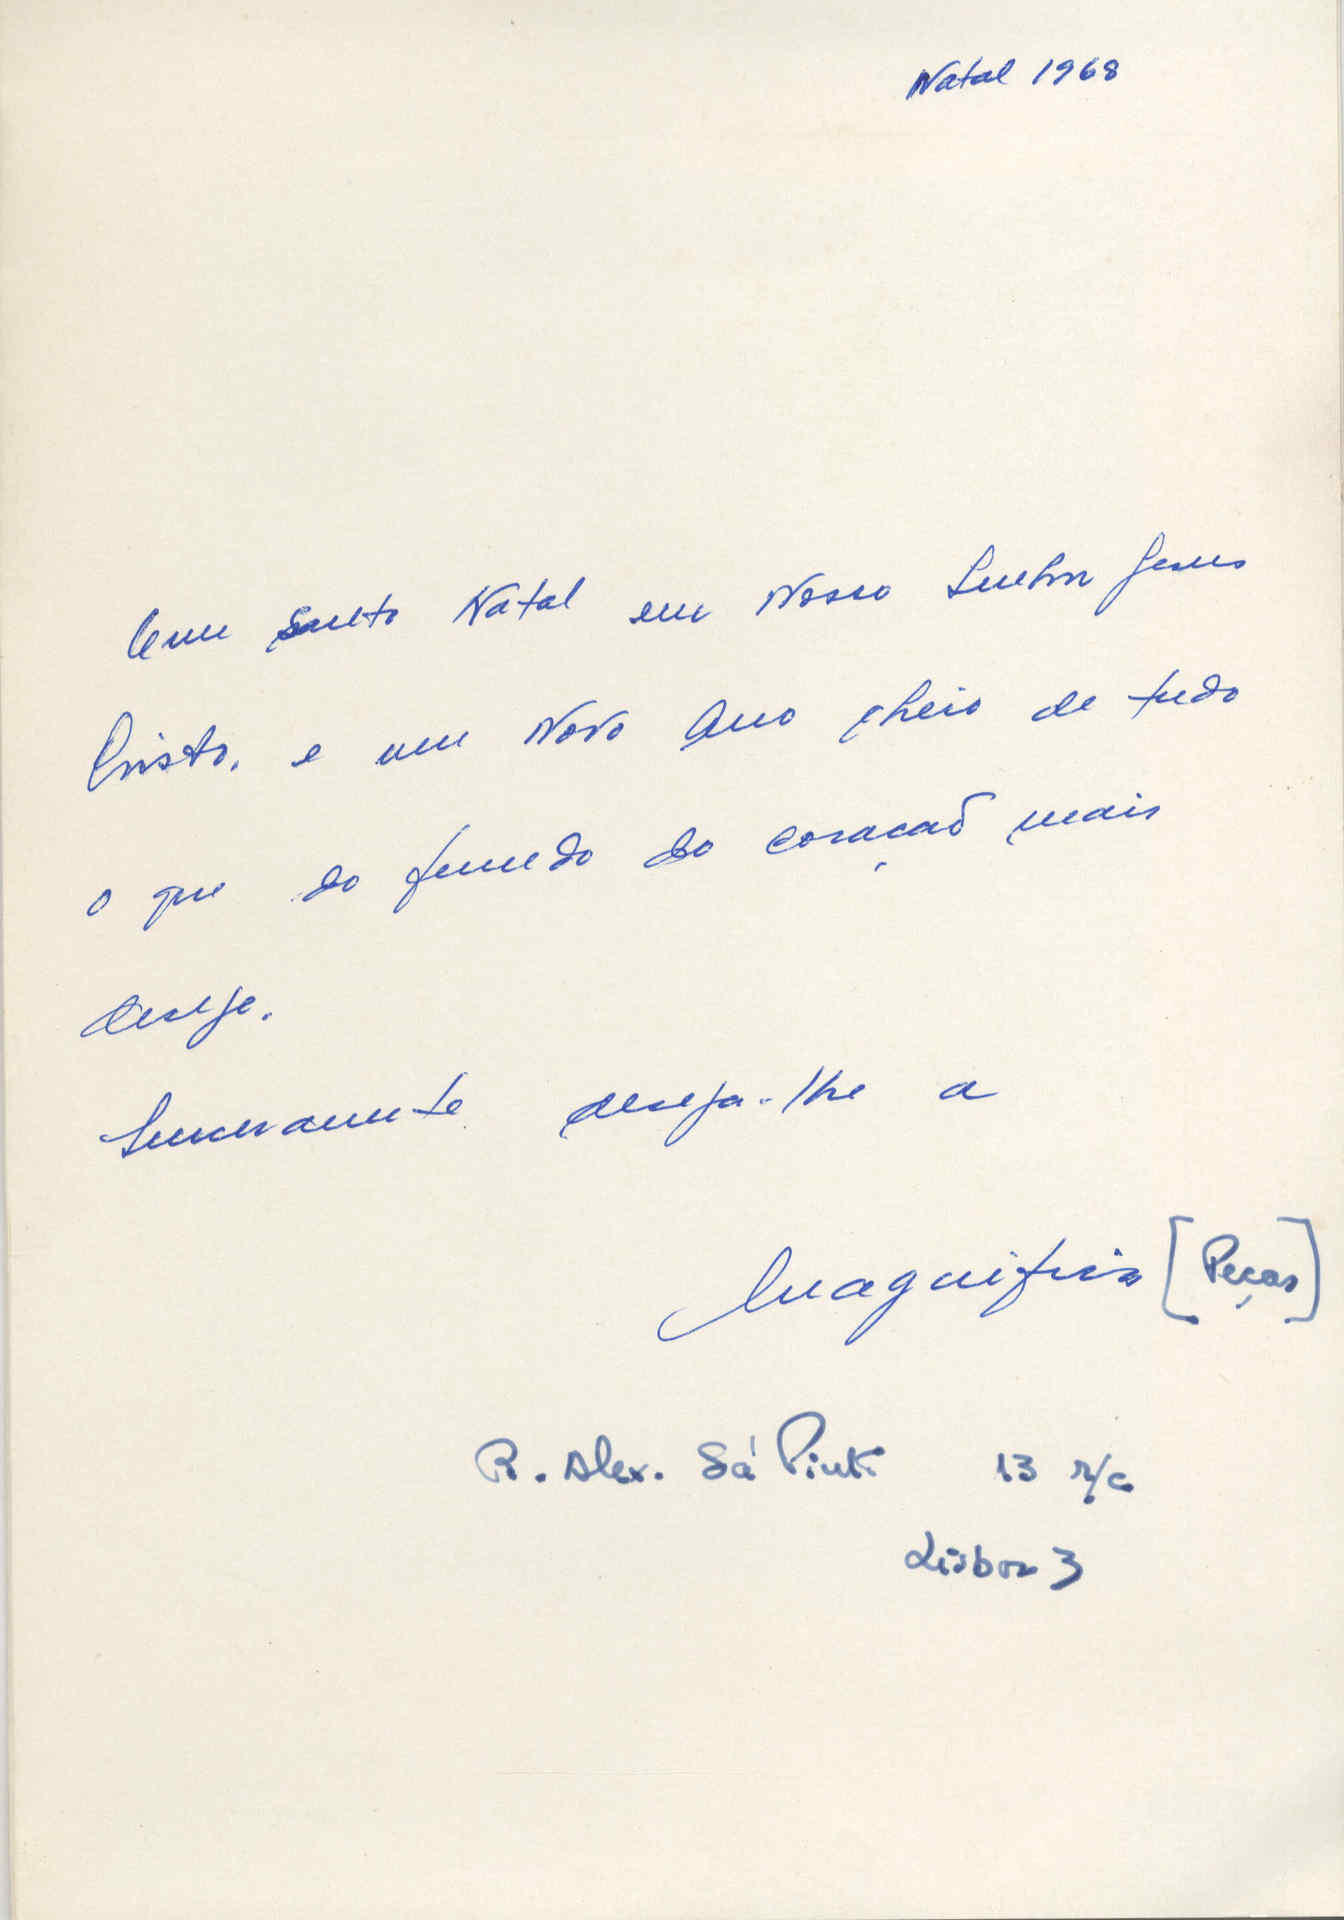 Natal 1968
Um santo Natal em Nosso Senhor Jesus
Cristo, e um Novo Ano cheio de tudo
o que do fundo do coração mais
deseje.
Sinceramente deseja-lhe a
Magnifica [Peças]
R. Alex. Sá Pinto 13 r/c
Lisboa 3